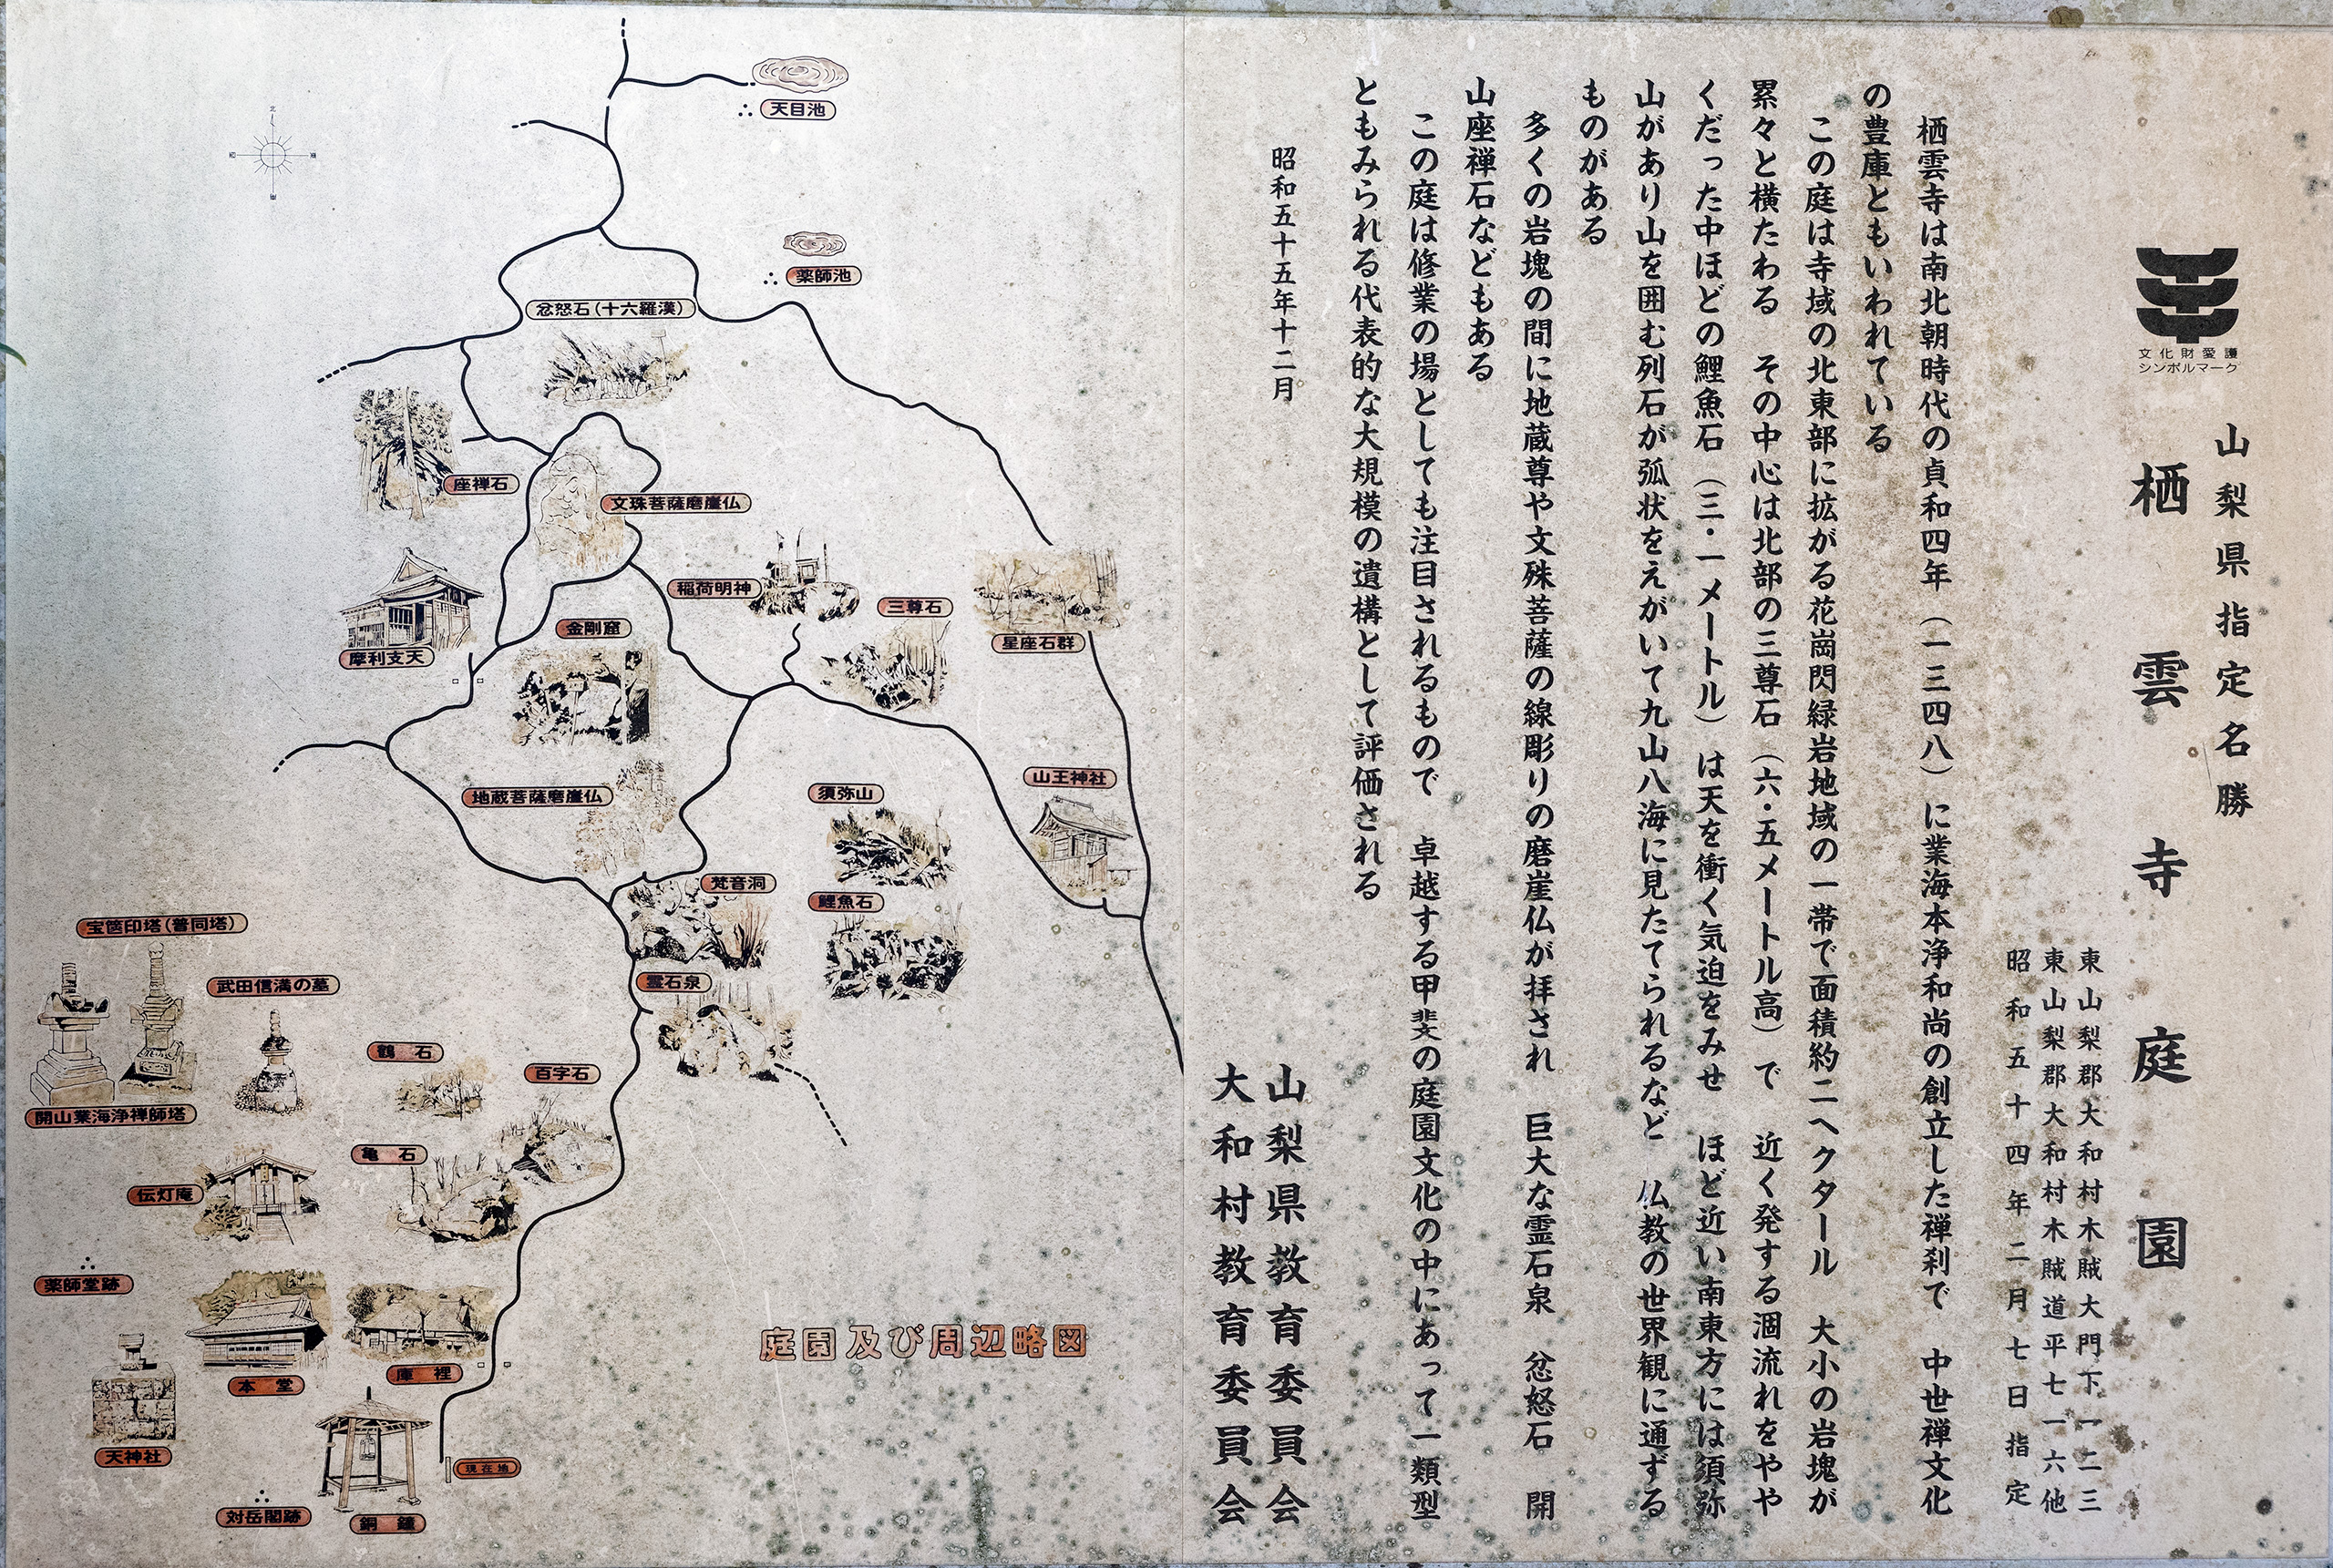 文化財愛護
シンボルマーク
山梨県指定名勝
栖雲寺庭園
東山梨郡大和村木賊大門下一二三
東山梨郡大和村木賊道平七一六他
昭和五十四年二月七日指定
栖雲寺は南北朝時代の貞和四年（一三四八）に業海本浄和尚の創立した禅刹で　中世禅文化
の豊庫ともいわれている
この庭は寺域の北東部に拡がる花崗閃緑岩地域の一帯で面積約二ヘクタール　大小の岩塊が
累々と横たわる　その中心は北部の三尊石（六・五メートル高）で　近く発する涸流れをやや
くだった中ほどの鯉魚石（三・一メートル）は天を衝く気迫をみせ　ほど近い南東方には須弥
山があり山を囲む列石が弧状をえがいて九山八海に見たてられるなど　仏教の世界観に通ずる
ものがある
多くの岩塊の間に地蔵尊や文殊菩薩の線彫りの磨崖仏が拝され　巨大な霊石泉　忿怒石　開
山座禅石などもある
この庭は修業の場としても注目されるもので　卓越する甲斐の庭園文化の中にあって一類型
ともみられる代表的な大規模の遺構として評価される
昭和五十五年十二月
山梨県教育委員会
大和村教育委員会
北
西
東
南
天目池
薬師池
忿怒石（十六羅漢）
座禅石
文珠菩薩磨崖仏
稲荷明神
三尊石
星座石群
摩利支天
金剛窟
山王神社
地蔵菩薩磨崖仏
須弥山
梵音洞
鯉魚石
宝筐印塔（普同塔）
霊石泉
武田信満の墓
鶴石
百字石
開山業海浄禅師塔
亀石
伝灯庵
薬師堂跡
本堂
庫裡
庭園及び周辺略図
天神社
現在地
対岳閣跡
銅鐘